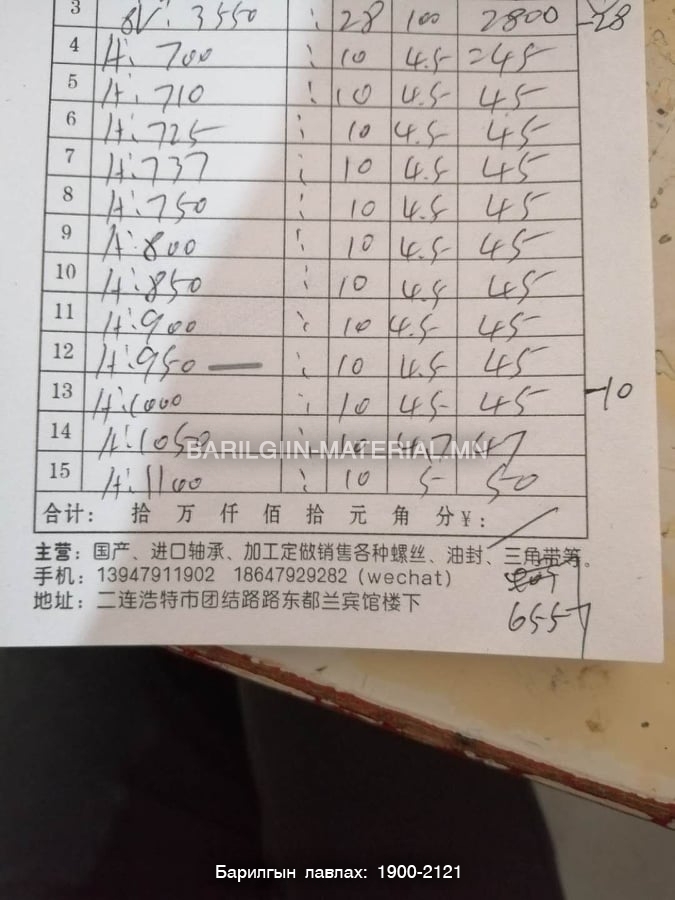 3 8V: 3550 28 100 2800 -28
4 A: 700 10 4.5 =45
5 A: 710 10 4.5 45
6 A: 725 10 4.5 45
7 A: 737 10 4.5 45
8 A: 750 10 4.5 45
9 A: 800 10 4.5 45
10 A: 850 10 4.5 45
11 A: 900 10 4.5 45
12 A: 950 — 10 4.5 45
13 A: 1000 10 4.5 45 -10
14 A: 1050 10 4.7 47
BARILGIIN-MATERIAL.MN
15 A: 1100 10 5 50
合计: 拾 万 仟 佰 拾 元 角 分 ¥:
主营: 国产、进口轴承、加工定做销售各种螺丝、油封、三角带等。
手机: 13947911902 18647929282 (wechat)
地址: 二连浩特市团结路路东都兰宾馆楼下
6557
Барилгын лавлах: 1900-2121